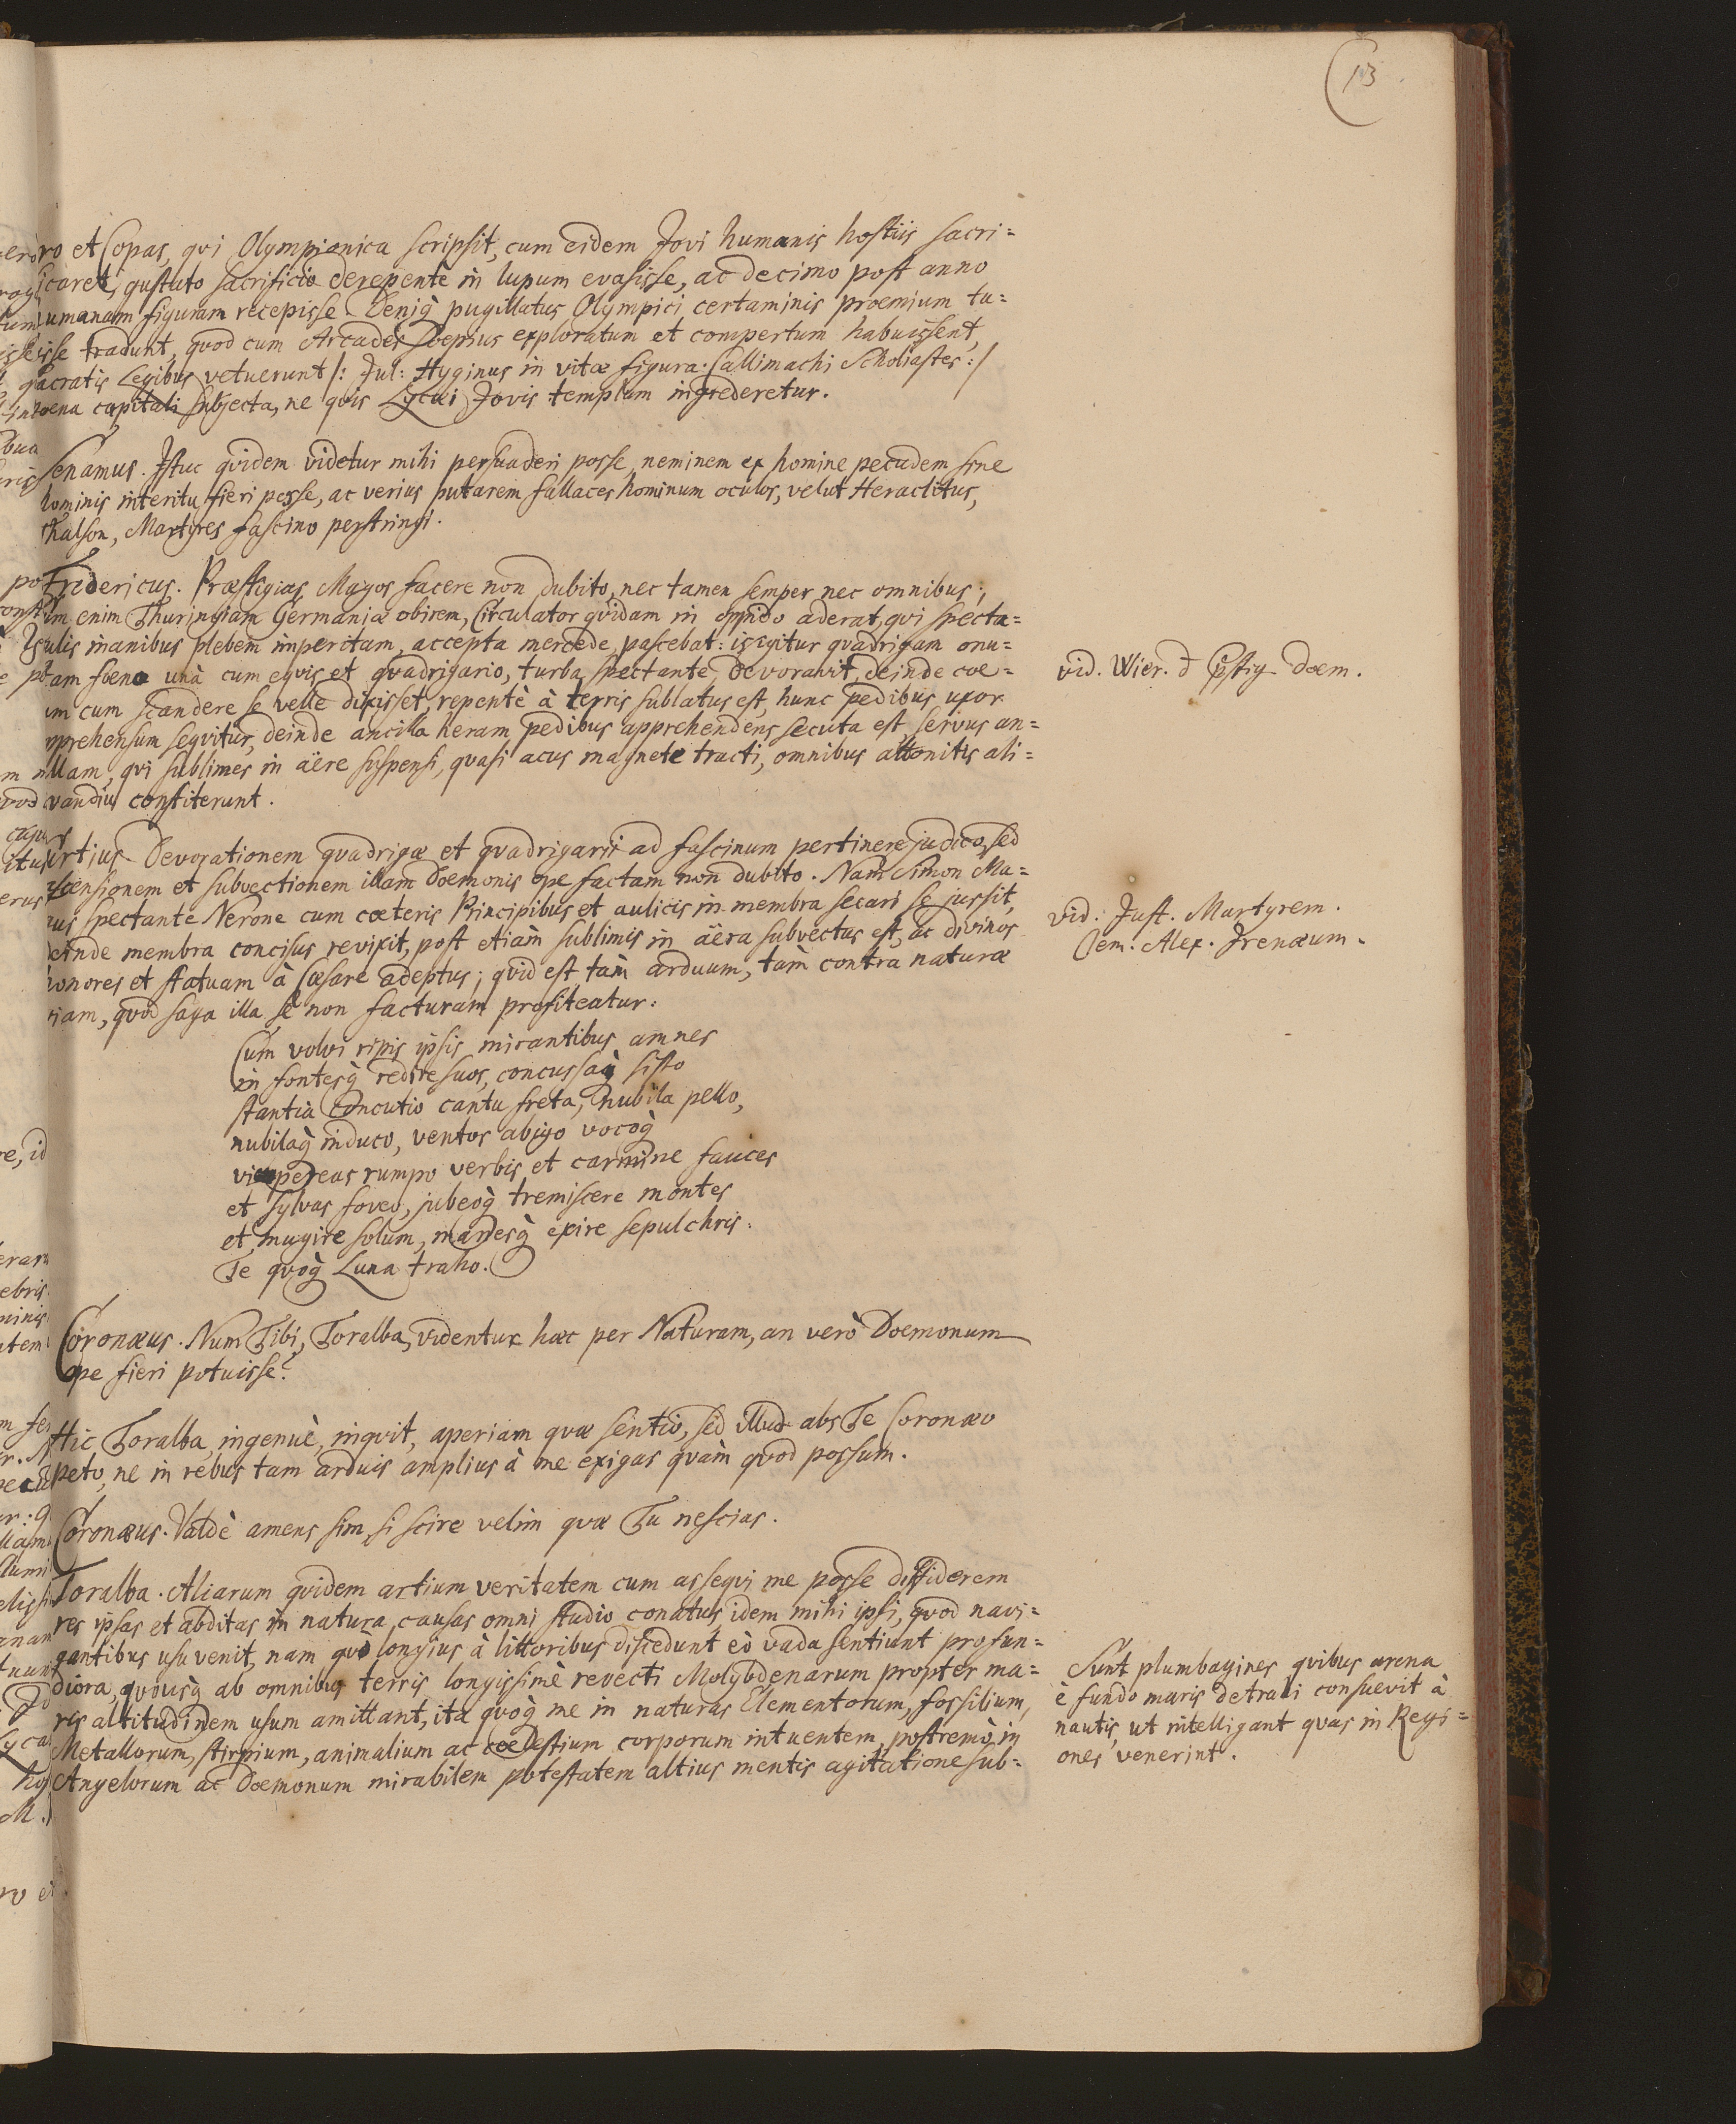 13
ro et Copas, qvi Olympionica scripsit, cum eidem Jovi humanis hostiis sacri=
icaret, gustato sacrificio derepentè in lupum evasisse, ac decimo post anno
umanam figuram recepisse Deniq̀ pugillatus Olympici certaminis proemium tu=
isse tradunt, qvod cum Arcades soepius exploratum et compertum habuissent,
sacratis Legibus vetuerunt /: Jul: Hyginus in vitæ figura. Callimachi Scholiastes :/
poena capitali subjecta, ne qvis Lycæi Jovis templum ingrederetur.
Senamus. Istuc qvidem videtur mihi persuaderi posse, neminem ex homine pecudem sine
hominis interitu fieri posse, ac verius putarem fallaces hominum oculos, velut Heraclitus,
Thalson, Martyres fascino perstringi.
Fridericus. Præstigias Magos facere non dubito, nec tamen semper nec omnibus;
um enim Thuringiam Germaniæ obirem, Circulator qvidam in oppido aderat, qvi specta=
ulis inanibus plebem imperitam, accepta mercede, pascebat: is igitur qvadrigam onu=
am foeno unà cum eqvis et qvadrigario, turba spectante, devoravit, deinde coe=
um cum scandere se velle dixisset, repentè à terris sublatus est, hunc pedibus uxor
pprehensum seqvitur, deinde ancilla heram pedibus apprehendens secuta est, servus an=
illam, qvi sublimes in äëre suspensi, qvasi acus magnete tracti, omnibus attonitis ali=
vandiu constiterunt.
vid. Wier. d p̃stig doem.
urtius Devorationem qvadrigæ et qvadrigarii ad fascinum pertinere judico, sed
scensionem et subvectionem illam doemonis ope factam non dubito. Nam Simon Ma=
us spectante Nerone cum cæteris Principibus et aulicis in membra secari se jussit,
deinde membra concisus revixit, post etiam sublimis in äëra subvectus est, ac divinos
honores et statuam à Cæsare adeptus; qvid est tàm arduum, tàm contra naturæ
iam, qvod saga illa se non facturam profiteatur:
vid. Just. Martyrem.
Clem. Alex. Irenæum.
Cum volvi ripis ipsis mirantibus amnes
in fontesq̀ redire suos, concussaq̀ sisto
stantia concutio cantu freta, nubila pello,
nubilaq̀ induco, ventos abigo vocoq̀
vipereas rumpo verbis et carmine fauces
et sylvas foveo, jubeoq̀ tremiscere montes
et mugire solum, manesq̀ exire sepulchris.
Te qvoq̀ Luna traho.
Coronæus. Num Tibi, Toralba, videntur hæc per Naturam, an verò Doemonum
ope fieri potuisse?
Hic Toralba, ingenuè, inqvit, aperiam qvæ sentio, sed illud abs Te Coronæo
peto, ne in rebus tam arduis amplius à me exigas qvàm qvod possum.
Coronæus. Valdè amens sim, si scire velim qvæ Tu nescias.
Toralba. Aliarum qvidem artium veritatem cum asseqvi me posse diffiderem
res ipsas et abditas in natura causas omni studio conatus, idem mihi ipsi, qvod navi=
gantibus usu venit, nam qvò longius à littoribus discedunt eò vada sentiunt profun=
diora, qvousq̀ ab omnibus terris longissimè revecti Molybdenarum propter ma=
ris altitudinem usum amittant, ita qvoq̀ me in naturas Elementorum, fossilium,
Metallorum, stirpium, animalium ac coelestium corporum intuentem, postremò in
Angelorum ac Doemonum mirabilem potestatem altius mentis agitatione sub=
Sunt plumbagines qvibus arena
è fundo maris detrahi consuevit à
nautis, ut intelligant qvas in Regi=
ones venerint.